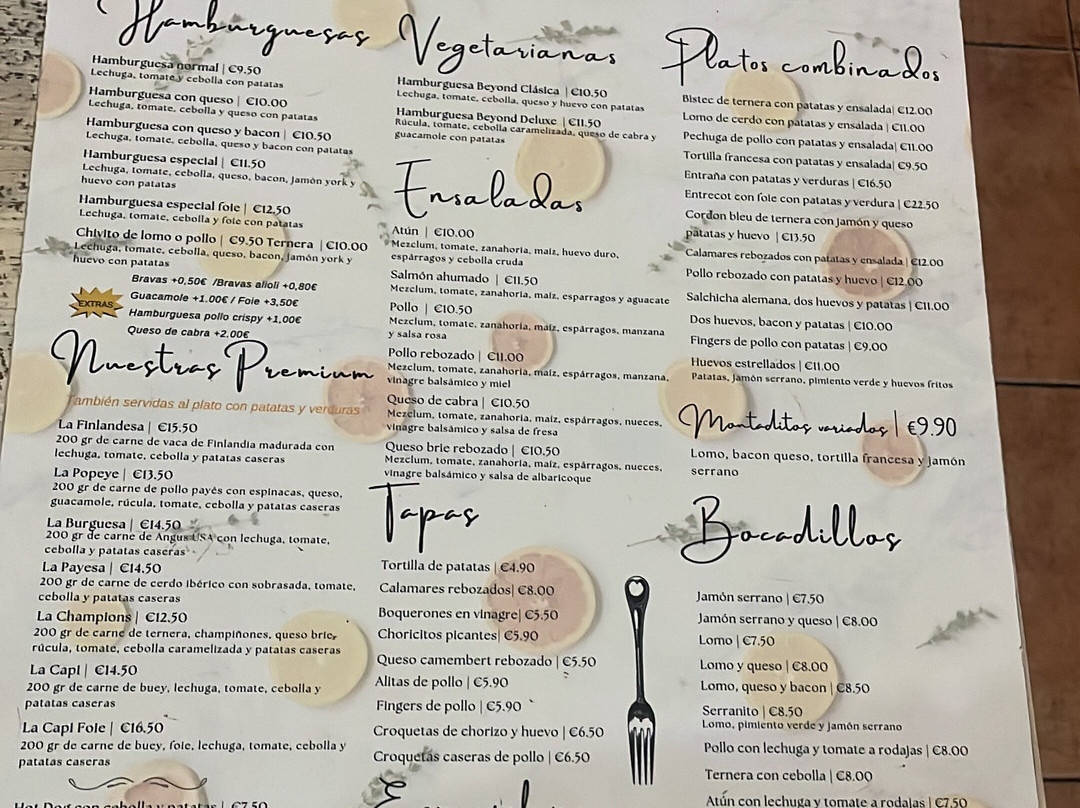 Hamburguesas
Hamburguesa normal | €9.50
Lechuga, tomate y cebolla con patatas
Hamburguesa con queso | €10.00
Lechuga, tomate, cebolla y queso con patatas
Hamburguesa con queso y bacon | €10.50
Lechuga, tomate, cebolla, queso y bacon con patatas
Hamburguesa especial | €11.50
Lechuga, tomate, cebolla, queso, bacon, jamón york y
huevo con patatas
Hamburguesa especial foie | €12.50
Lechuga, tomate, cebolla y foie con patatas
Chivito de lomo o pollo | €9.50 Ternera | €10.00
Lechuga, tomate, cebolla, queso, bacon, jamón york y
huevo con patatas
EXTRAS
Bravas +0,50€ /Bravas alioli +0,80€
Guacamole +1.00€ / Foie +3,50€
Hamburguesa pollo crispy +1,00€
Queso de cabra +2.00€
Nuestras Premium
También servidas al plato con patatas y verduras
La Finlandesa | €15.50
200 gr de carne de vaca de Finlandia madurada con
lechuga, tomate, cebolla y patatas caseras
La Popeye | €13.50
200 gr de carne de pollo payés con espinacas, queso,
guacamole, rúcula, tomate, cebolla y patatas caseras
La Burguesa | €14.50
200 gr de carne de Angus USA con lechuga, tomate,
cebolla y patatas caseras
La Payesa | €14.50
200 gr de carne de cerdo ibérico con sobrasada, tomate,
cebolla y patatas caseras
La Champions | €12.50
200 gr de carne de ternera, champiñones, queso brie,
rúcula, tomate, cebolla caramelizada y patatas caseras
La Capi | €14.50
200 gr de carne de buey, lechuga, tomate, cebolla y
patatas caseras
La Capi Foie | €16.50
200 gr de carne de buey, foie, lechuga, tomate, cebolla y
patatas caseras
Hot Dog con cebolla y patatas | €7.50
Vegetarianas
Hamburguesa Beyond Clásica | €10.50
Lechuga, tomate, cebolla, queso y huevo con patatas
Hamburguesa Beyond Deluxe | €11.50
Rúcula, tomate, cebolla caramelizada, queso de cabra y
guacamole con patatas
Ensaladas
Atún | €10.00
Mezclum, tomate, zanahoria, maíz, huevo duro,
espárragos y cebolla cruda
Salmón ahumado | €11.50
Mezclum, tomate, zanahoria, maíz, esparragos y aguacate
Pollo | €10.50
Mezclum, tomate, zanahoria, maíz, espárragos, manzana
y salsa rosa
Pollo rebozado | €11.00
Mezclum, tomate, zanahoria, maíz, espárragos, manzana,
vinagre balsámico y miel
Queso de cabra | €10.50
Mezclum, tomate, zanahoria, maíz, espárragos, nueces,
vinagre balsámico y salsa de fresa
Queso brie rebozado | €10.50
Mezclum, tomate, zanahoria, maíz, espárragos, nueces,
vinagre balsámico y salsa de albaricoque
Tapas
Tortilla de patatas | €4.90
Calamares rebozados| €8.00
Boquerones en vinagre| €5.50
Choricitos picantes| €5.90
Queso camembert rebozado | €5.50
Alitas de pollo | €5.90
Fingers de pollo | €5.90
Croquetas de chorizo y huevo | €6.50
Croquetas caseras de pollo | €6.50
Platos combinados
Bistec de ternera con patatas y ensalada| €12.00
Lomo de cerdo con patatas y ensalada | €11.00
Pechuga de pollo con patatas y ensalada| €11.00
Tortilla francesa con patatas y ensalada| €9.50
Entraña con patatas y verduras | €16.50
Entrecot con foie con patatas y verdura | €22.50
Cordon bleu de ternera con jamón y queso
patatas y huevo | €13.50
Calamares rebozados con patatas y ensalada | €12.00
Pollo rebozado con patatas y huevo | €12.00
Salchicha alemana, dos huevos y patatas | €11.00
Dos huevos, bacon y patatas | €10.00
Fingers de pollo con patatas | €9.00
Huevos estrellados | €11.00
Patatas, jamón serrano, pimiento verde y huevos fritos
Montaditos variados | €9.90
Lomo, bacon queso, tortilla francesa y jamón
serrano
Bocadillos
Jamón serrano | €7.50
Jamón serrano y queso | €8.00
Lomo | €7.50
Lomo y queso | €8.00
Lomo, queso y bacon | €8.50
Serranito | €8.50
Lomo, pimiento verde y jamón serrano
Pollo con lechuga y tomate a rodajas | €8.00
Ternera con cebolla | €8.00
Atún con lechuga y tomate a rodajas | €7.50